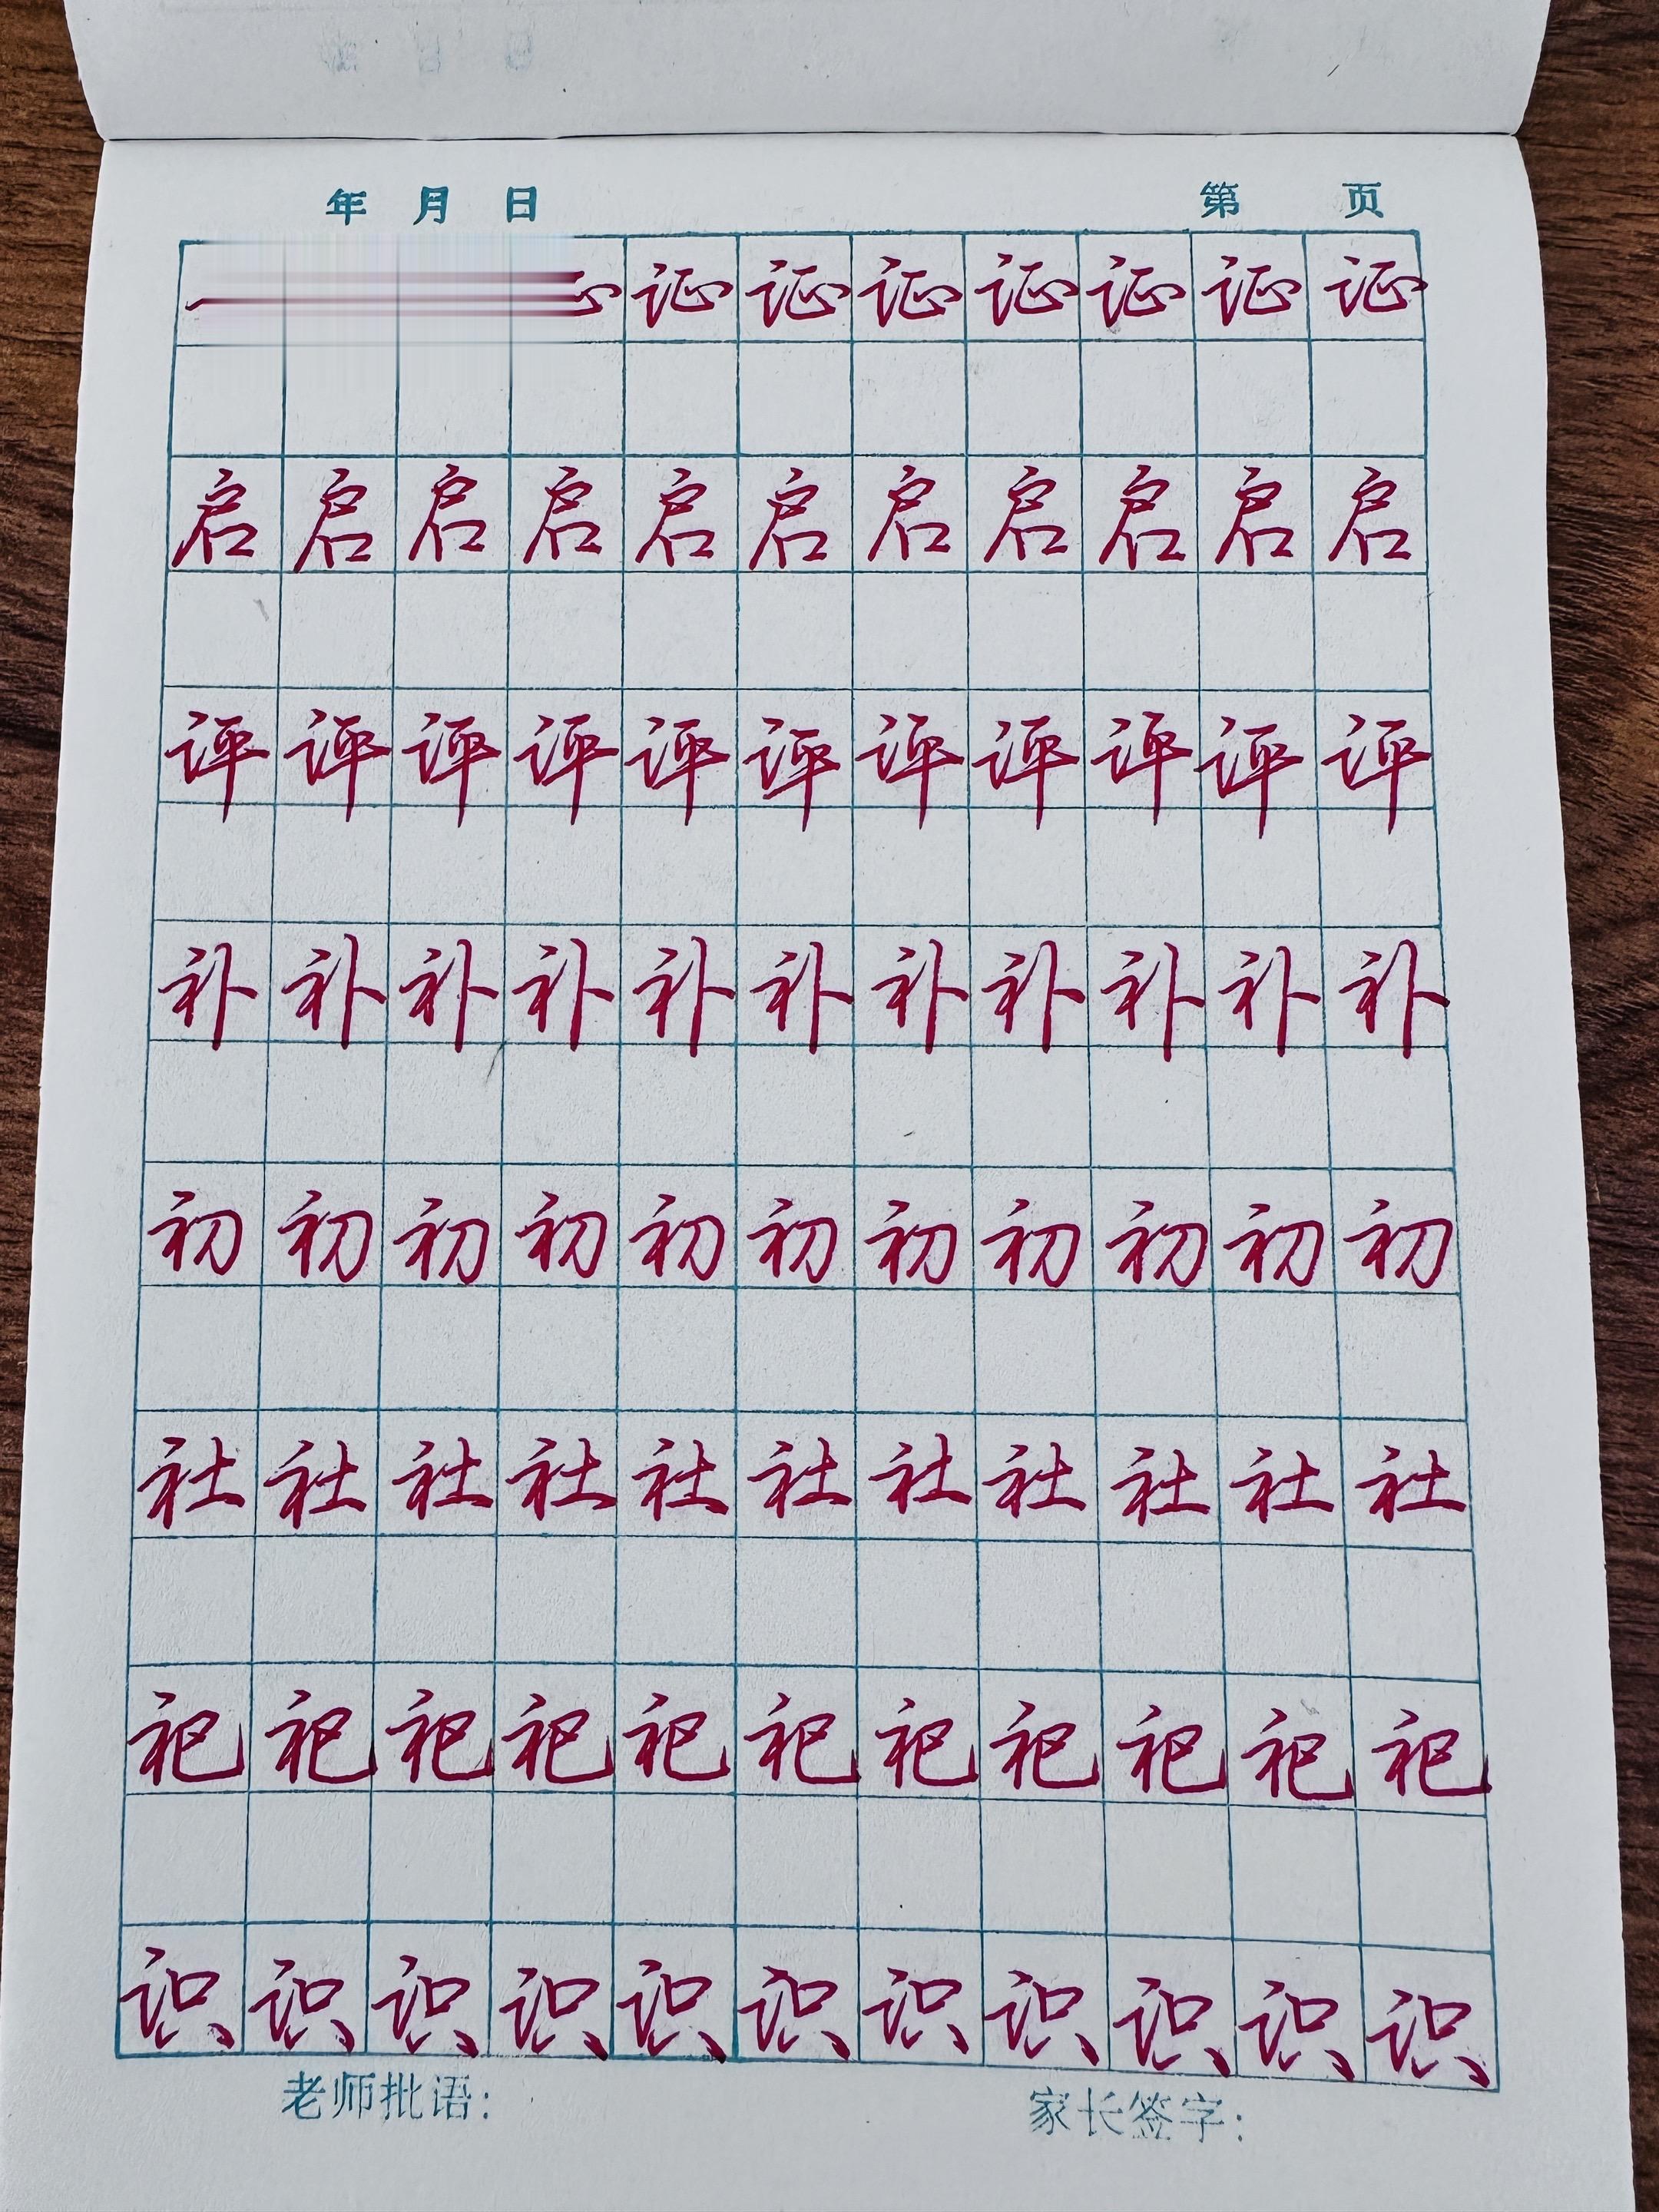 年 月 日 第 页
证 证 证 证 证 证 证
启 启 启 启 启 启 启 启 启 启 启
评 评 评 评 评 评 评 评 评 评 评
补 补 补 补 补 补 补 补 补 补 补
初 初 初 初 初 初 初 初 初 初 初
社 社 社 社 社 社 社 社 社 社 社
祀 祀 祀 祀 祀 祀 祀 祀 祀 祀 祀
识 识 识 识 识 识 识 识 识 识 识
老师批语: 家长签字: